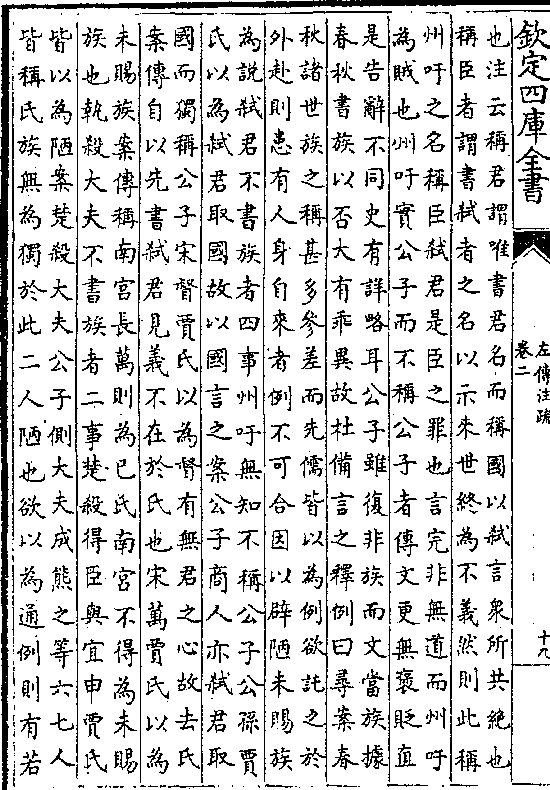 欽定四庫全書
左傳注疏
卷二
十九
也注云稱君謂唯書君名而稱國以弑言衆所共絶也
稱臣者謂書弑者之名以示來世終為不義然則此稱
州吁之名稱臣弑君是臣之罪也言完非無道而州吁
為賊也州吁實公子而不稱公子者傳文更無褒貶直
是告辭不同史有詳略耳公子雖復非族而文當族據
春秋書族以否大有乖異故杜備言之釋例曰尋案春
秋諸世族之稱甚多參差而先儒皆以為例欲託之於
外赴則患有人身自來者例不可合因以辟陋未賜族
為說弑君不書族者四事州吁無知不稱公子公孫賈
氏以為弑君取國故以國言之案公子商人亦弑君取
國而獨稱公子宋督賈氏以為督有無君之心故去氏
案傳自以先書弑君見義不在於氏也宋萬賈氏以為
未賜族案傳稱南宮長萬則為已氏南宮不得為未賜
族也執殺大夫不書族者二事楚殺得臣與宜申賈氏
皆以為陋案楚殺大夫公子側大夫成熊之等六七人
皆稱氏族無為獨於此二人陋也欲以為通例則有若